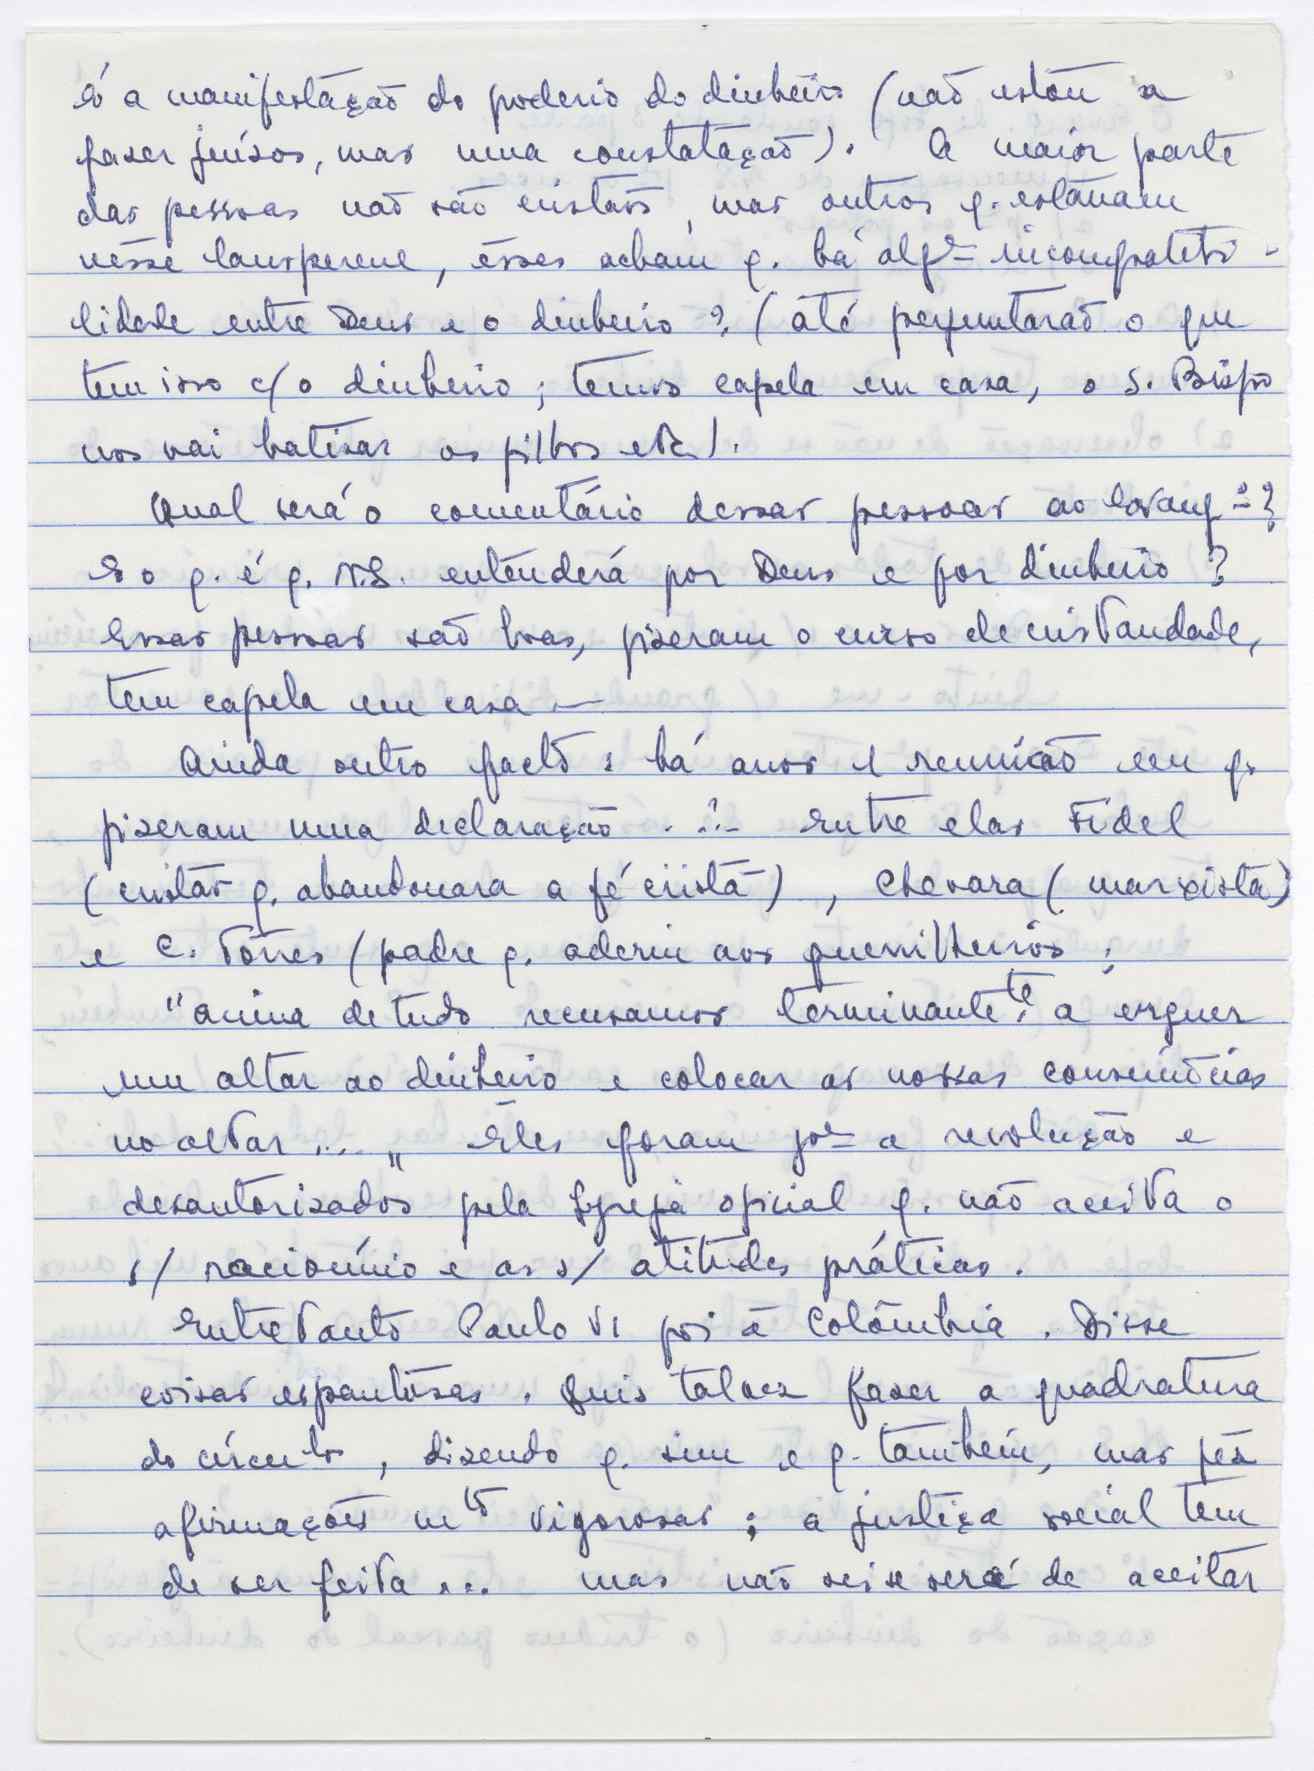 É a manifestação do poderio do dinheiro (não estou a
fazer juízos, mas uma constatação). A maior parte
das pessoas não são cristãos, mas outros q. estavam
nesse lausperene, êsses acham q. há algª incompatibi-
lidade entre Deus e o dinheiro? (até perguntarão o que
tem isso c/ o dinheiro; temos capela em casa, o S. Bispo
nos vai batizar os filhos etc).
Qual será o comentário dessas pessoas ao Evangº?
E o q. é q. N.S. entenderá por Deus e por dinheiro?
Essas pessoas são boas, fizeram o curso de cristandade,
tem capela em casa —
Ainda outro facto: há anos 1 reunião em q.
fizeram uma declaração ... Entre elas Fidel
(cristão q. abandonara a fé cristã), Chevara (marxista)
e C. Torres (padre q. aderiu aos guerrilheiros:
"acima de tudo recusamos terminantete. a erguer
um altar ao dinheiro e colocar as nossas consciências
no altar ... „ Eles foram para a revolução e
desautorizados pela Igreja oficial q. não aceita o
s/ raciocínio e as s/ atitudes práticas.
Entretanto Paulo VI foi à Colômbia. Disse
coisas espantosas. Quis talvez fazer a quadratura
do círculo, dizendo q. sim e q. também, mas fez
afirmações mto vigorosas; a justiça social tem
de ser feita ... mas não sei se será de aceitar